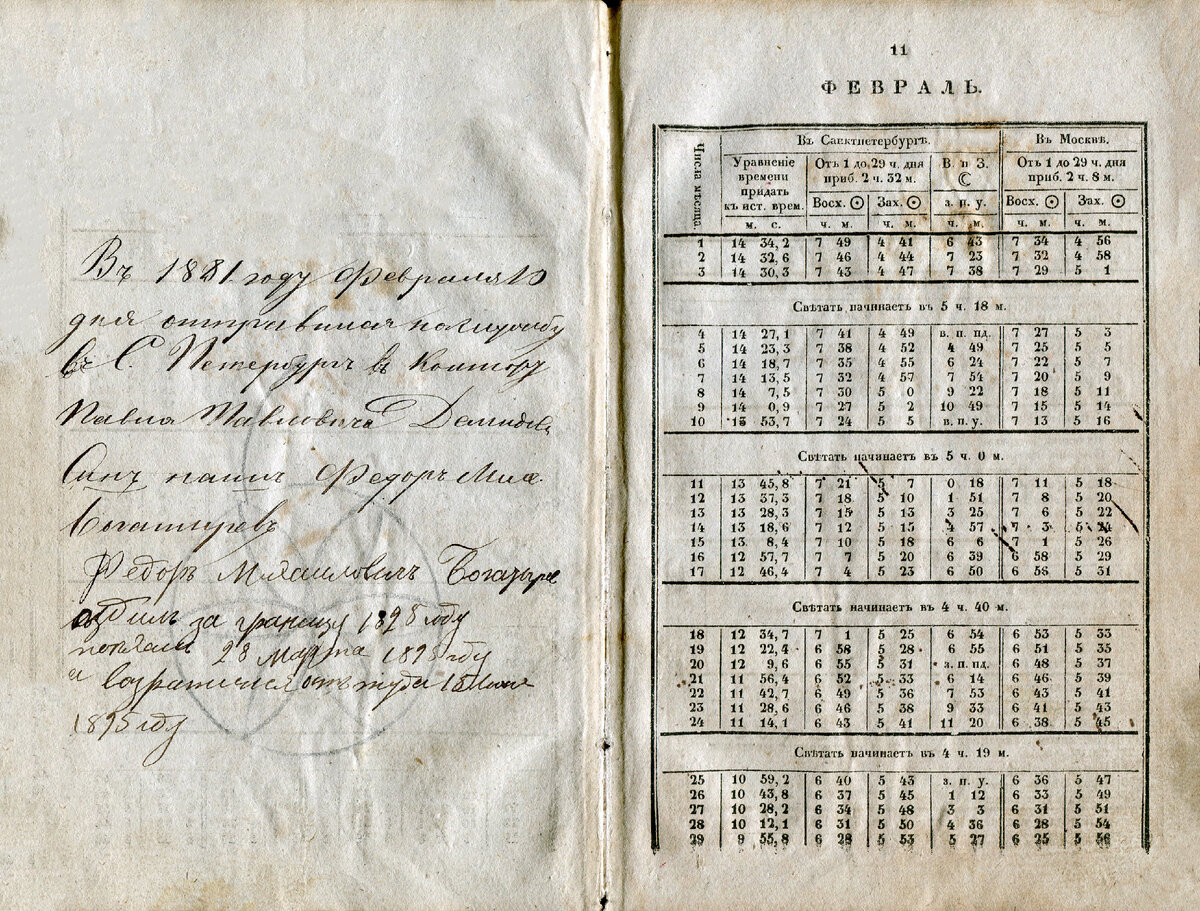 Въ 1881 году Февраля 10
дня отправился на службу
въ С. Петербургъ в Контору
Павла Павловича Демидова
Сынъ нашъ Федоръ Миха.
Богатыревъ
Федоръ Михаиловичъ Богатыре
ездилъ за границу 1895 году
поехали 28 марта 1895 году
и возратились оттуда 15 Июня
1895 году
11
ФЕВРАЛЬ.
Числа мѣсяца.
Въ Санктпетербургѣ. Въ Москвѣ.
Уравненіе От 1 до 29 ч. дня В. и З. Отъ 1 до 29 ч. дня
времени приб. 2 ч. 32 м. ☾ приб. 2 ч. 8 м.
придать
къ ист. врем. Восх. ☉ Зах. ☉ з. п. у. Восх. ☉ Зах. ☉
м. с. ч. м. ч. м. ч. м. ч. м. ч. м.
1 14 34,2 7 49 4 41 6 43 7 34 4 56
2 14 32,6 7 46 4 44 7 23 7 32 4 58
3 14 30,3 7 43 4 47 7 38 7 29 5 1
Свѣтать начинаетъ въ 5 ч. 18 м.
4 14 27,1 7 41 4 49 в. п. пд. 7 27 5 3
5 14 23,3 7 38 4 52 4 49 7 25 5 5
6 14 18,7 7 35 4 55 6 24 7 22 5 7
7 14 13,5 7 32 4 57 7 54 7 20 5 9
8 14 7,5 7 30 5 0 9 22 7 18 5 11
9 14 0,9 7 27 5 2 10 49 7 15 5 14
10 13 53,7 7 24 5 5 в. п. у. 7 13 5 16
Свѣтать начинаетъ въ 5 ч. 0 м.
11 13 45,8 7 21 5 7 0 18 7 11 5 18
12 13 37,3 7 18 5 10 1 51 7 8 5 20
13 13 28,3 7 15 5 13 3 25 7 6 5 22
14 13 18,6 7 12 5 15 4 57 7 3 5 24
15 13 8,4 7 10 5 18 6 6 7 1 5 26
16 12 57,7 7 7 5 20 6 39 6 58 5 29
17 12 46,4 7 4 5 23 6 50 6 58 5 31
Свѣтать начинаетъ въ 4 ч. 40 м.
18 12 34,7 7 1 5 25 6 54 6 53 5 33
19 12 22,4 6 58 5 28 6 55 6 51 5 35
20 12 9,6 6 55 5 31 з. п. пд. 6 48 5 37
21 11 56,4 6 52 5 33 6 14 6 46 5 39
22 11 42,7 6 49 5 36 7 53 6 43 5 41
23 11 28,6 6 46 5 38 9 33 6 41 5 43
24 11 14,1 6 43 5 41 11 20 6 38 5 45
Свѣтать начинаетъ въ 4 ч. 19 м.
25 10 59,2 6 40 5 43 з. п. у. 6 36 5 47
26 10 43,8 6 37 5 45 1 12 6 33 5 49
27 10 28,2 6 34 5 48 3 3 6 31 5 51
28 10 12,1 6 31 5 50 4 36 6 28 5 54
29 9 55,8 6 28 5 53 5 27 6 25 5 56